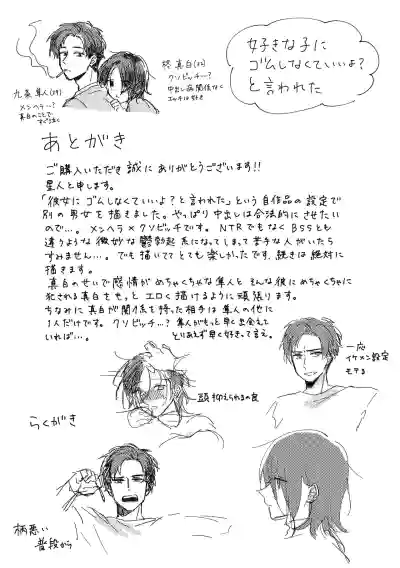 好きな子に
ゴムしなくていいよ?
と言われた
柊 真白(22)
クソビッチ…?
中出し病関係なく
エッチは好き
九条 隼人(29)
メンヘラ…?
真白のことで
すぐ泣く
あとがき
ご購入いただき誠にありがとうございます!!
星人と申します。
「彼女にゴムしなくていいよ?と言われた」という自作品の設定で
別の男女を描きました。やっぱり中出しは合法的にさせたい
ので…。メンヘラ×クソビッチです。NTRでもなくBSSとも
違うような微妙な鬱勃起系になってしまって苦手な人がいたら
すみません…。でも描いててとても楽しかったです。続きは絶対に
描きます。
真白のせいで感情がめちゃくちゃな隼人とそんな彼にめちゃくちゃに
犯される真白をもっとエロく描けるように頑張ります。
ちなみに真白が関係を持った相手は隼人の他に
1人だけです。クソビッチ…?隼人がもっと早く出会えて
いれば…。
とりあえず早く好きって言え。
一応
イケメン設定
モテる
頭抑えられるの良
らくがき
柄悪い
普段から